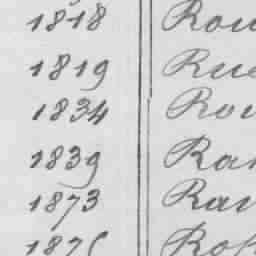 1818 Rou
1819 Rue
1834 Rou
1839 Ran
1873 Rau